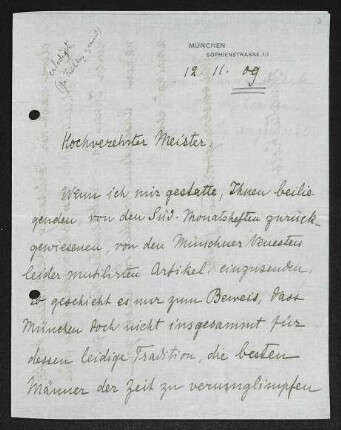 erledigt
MÜNCHEN
SOPHIENSTRASSE
12. 11. 09
Hochverehrter Meister,
Wenn ich mir gestatte, Ihnen beilie
genden, von den Süd. Monatsheften zurück-
gewiesenen, von den Münchner Neuesten
leider mutilirten Artikel, einzusenden,
so geschieht es nur zum Beweis, dass
München doch nicht insgesammt für
dessen leidige Tradition, die besten
Männer der Zeit zu verunglimpfen